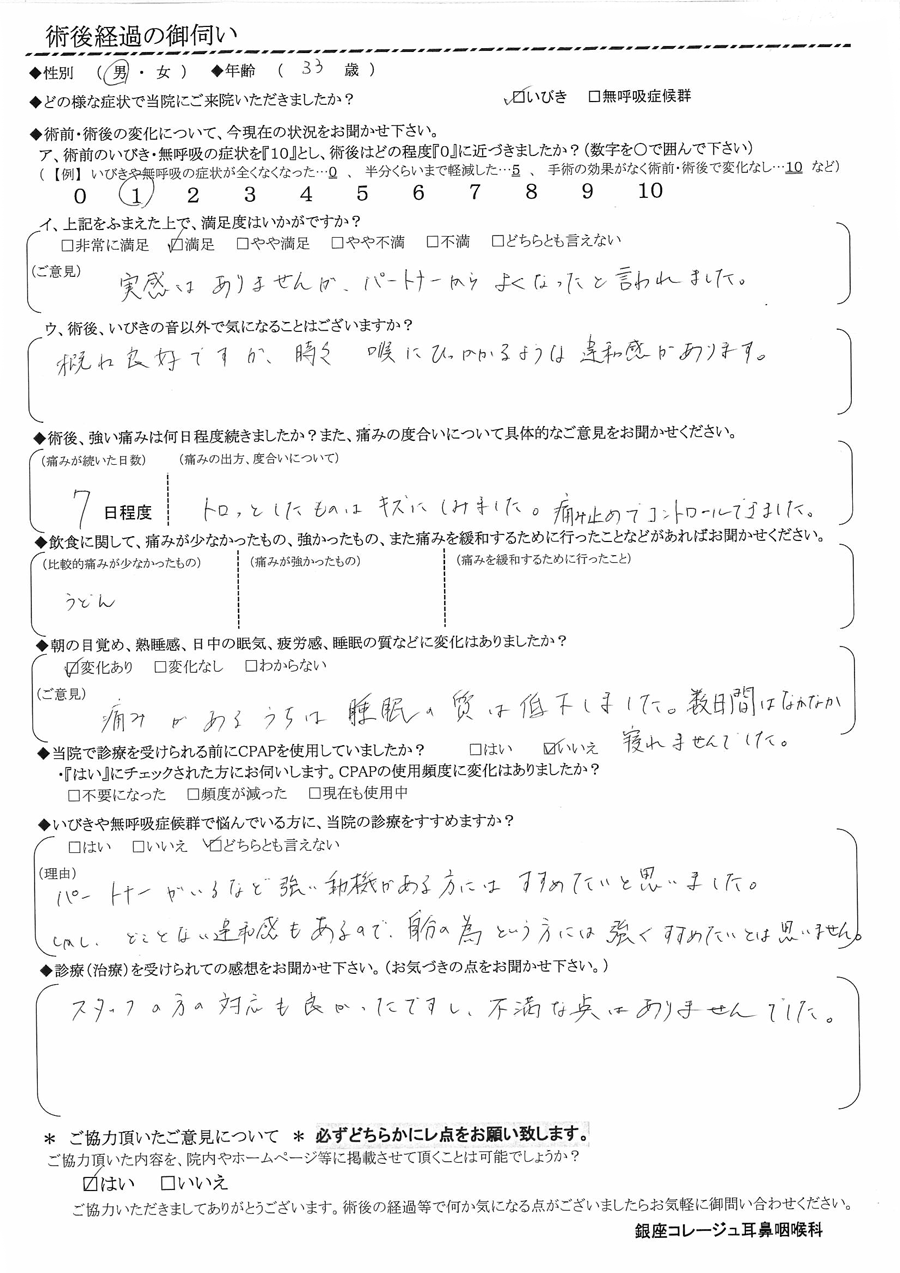 術後経過の御伺い
◆性別 (男・女) ◆年齢 (33 歳)
◆どの様な症状で当院にご来院いただきましたか? ☑いびき □無呼吸症候群
◆術前・術後の変化について、今現在の状況をお聞かせ下さい。
ア、術前のいびき・無呼吸の症状を『10』とし、術後はどの程度『0』に近づきましたか?(数字を○で囲んで下さい)
(【例】 いびきや無呼吸の症状が全くなくなった…0 、 半分くらいまで軽減した…5 、 手術の効果がなく術前・術後で変化なし…10 など)
0 1 2 3 4 5 6 7 8 9 10
イ、上記をふまえた上で、満足度はいかがですか?
□非常に満足 ☑満足 □やや満足 □やや不満 □不満 □どちらとも言えない
(ご意見)
実感はありませんが、パートナーからよくなったと言われました。
ウ、術後、いびきの音以外で気になることはございますか?
概ね良好ですが、時々 喉にひっかかるような違和感があります。
◆術後、強い痛みは何日程度続きましたか?また、痛みの度合いについて具体的なご意見をお聞かせください。
(痛みが続いた日数) (痛みの出方、度合いについて)
7 日程度 トロッとしたものはキズにしみました。痛み止めでコントロールできました。
◆飲食に関して、痛みが少なかったもの、強かったもの、また痛みを緩和するために行ったことなどがあればお聞かせください。
(比較的痛みが少なかったもの) (痛みが強かったもの) (痛みを緩和するために行ったこと)
うどん
◆朝の目覚め、熟睡感、日中の眠気、疲労感、睡眠の質などに変化はありましたか?
☑変化あり □変化なし □わからない
(ご意見)
痛みがあるうちは睡眠の質は低下しました。数日間はなかなか
寝れませんでした。
◆当院で診療を受けられる前にCPAPを使用していましたか? □はい ☑いいえ
・『はい』にチェックされた方にお伺いします。CPAPの使用頻度に変化はありましたか?
□不要になった □頻度が減った □現在も使用中
◆いびきや無呼吸症候群で悩んでいる方に、当院の診療をすすめますか?
□はい □いいえ ☑どちらとも言えない
(理由)
パートナーがいるなど強い動機がある方にはすすめたいと思いました。
しかし、どことない違和感もあるので、自分の為という方には強くすすめたいとは思いません。
◆診療(治療)を受けられての感想をお聞かせ下さい。(お気づきの点をお聞かせ下さい。)
スタッフの方の対応も良かったですし、不満な点はありませんでした。
＊ ご協力頂いたご意見について ＊ 必ずどちらかにレ点をお願い致します。
ご協力頂いた内容を、院内やホームページ等に掲載させて頂くことは可能でしょうか?
☑はい □いいえ
ご協力いただきましてありがとうございます。術後の経過等で何か気になる点がございましたらお気軽に御問い合わせください。
銀座コレージュ耳鼻咽喉科